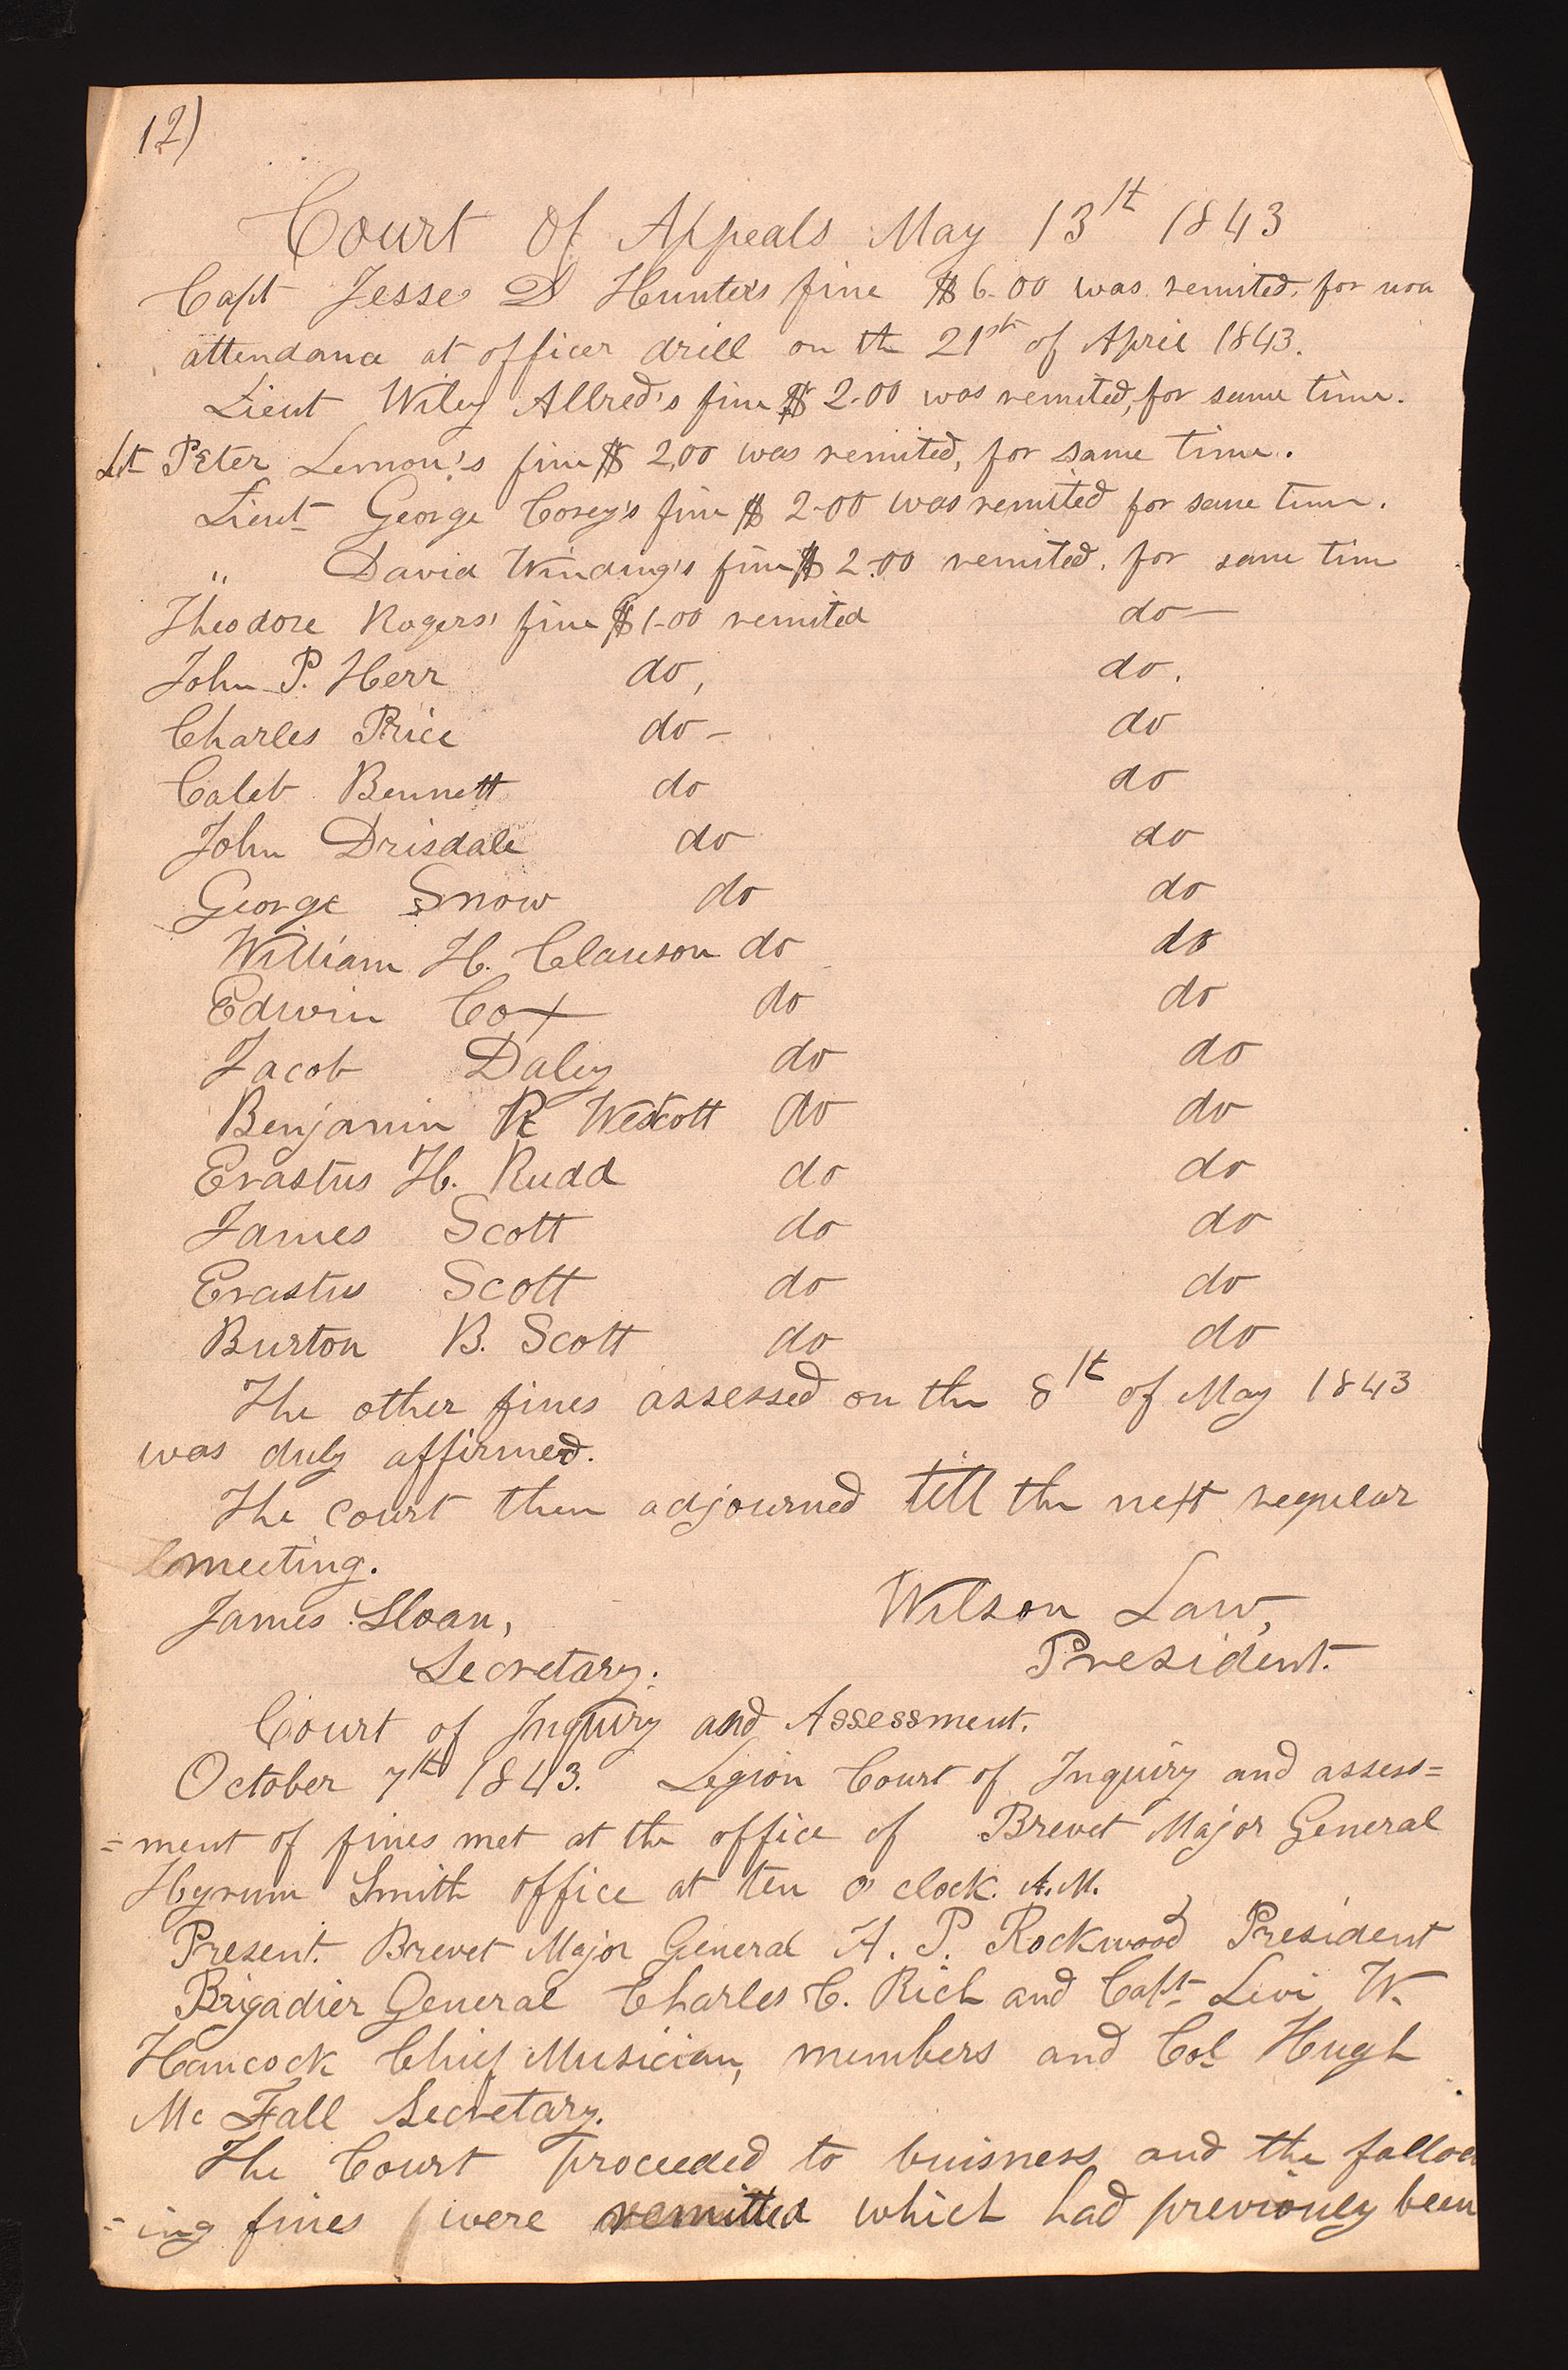 12)
Court Of Appeals May 13th 1843
Capt Jesse D Hunters fine $6.00 was remited, for non
attendance at officer drill on the 21st of April 1843.
Lieut Wiley Allred's fine $2.00 was remited, for same time.
Lt Peter Lemon's fine $2,00 was remited, for same time.
Lieut George Corey's fine $2.00 was remited for same time.
" David Winding's fine $2.00 remited, for same time
Theodore Rogers' fine $1.00 remited do—
John P. Herr do, do.
Charles Price do– do
Caleb Bennett do do
John Drisdale do do
George Snow do do
William H. Clawson do do
Edwin Cox do do
Jacob Daley do do
Benjamin R Wescott do do
Erastus H. Rudd do do
James Scott do do
Erastus Scott do do
Burton B. Scott do do
The other fines assessed on the 8th of May 1843
was duly affirmed.
The court then adjourned till the next regular
meeting.
James Sloan, Wilson Law,
Secretary. President.
Court of Inquiry and Assessment.
October 7th 1843. Legion Court of Inquiry and assess=
=ment of fines met at the office of Brevet Major General
Hyrum Smith office at ten o' clock. A.M.
Present. Brevet Major General A. P. Rockwood President
Brigadier General Charles C. Rich and Capt Levi W.
Hancock Chief Musician, members and Col Hugh
Mc Fall Secretary.
The Court proceeded to buisness and the follow
=ing fines were remitted which had previously been